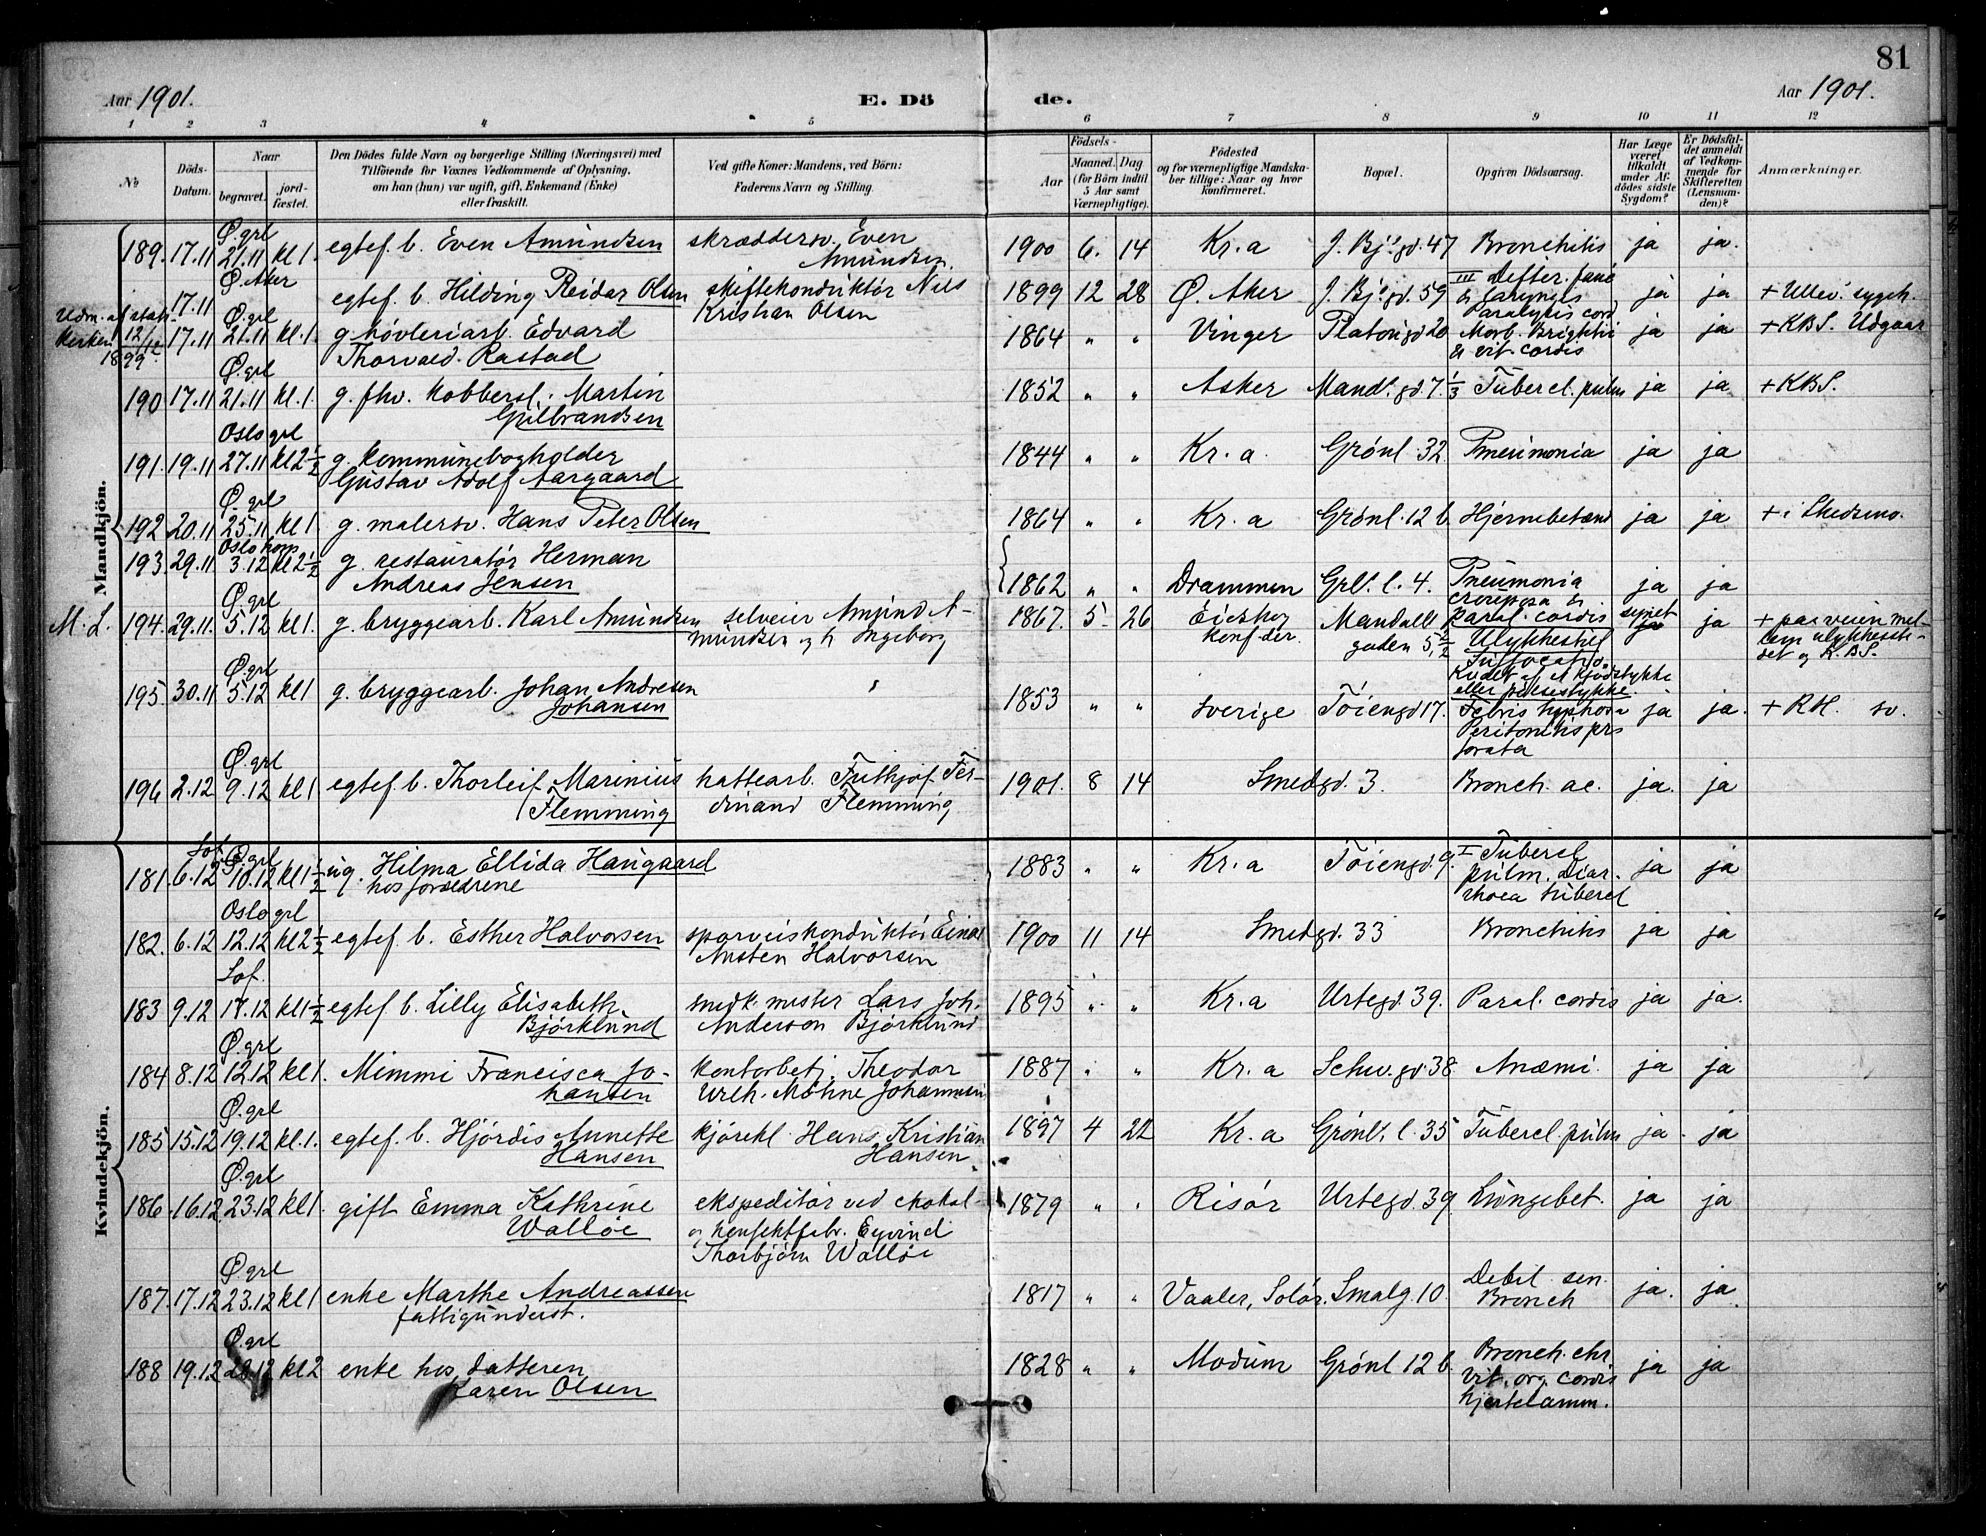 81
Aar 1901.
E. Dö
de.
Aar 1901.
1 2 3 4 5 6 7 8 9 10 11 12
No
Döds-
Datum.
Naar
begravet.
jord-
fæstet.
Den Dödes fulde Navn og borgerlige Stilling (Næringsvei) med
Tilföiende for Voxnes Vedkommende af Oplysning,
om han (hun) var ugift, gift, Enkemand (Enke)
eller fraskilt.
Ved gifte Koner: Mandens, ved Börn:
Faderens Navn og Stilling.
Födsels-
Aar
Maaned. Dag
(for Börn indtil
5 Aar samt
Værnepligtige).
Födested
og for værnepligtige Mandska-
ber tillige: Naar og hvor
konfirmeret.
Bopæl.
Opgiven Dödsaarsag.
Har Læge
været
tilkaldt
under Af-
dödes sidste
Sygdom?
Er Dödsfal-
det anmeldt
af Vedkom-
mende for
Skifteretten
(Lensman-
den)?
Anmærkninger.
Mandkjön.
Ø. grl
189. 17.11 21.11 kl 1. egtef. b. Even Amundsen skræddersv. Even
Amundsen. 1900 6. 14 Kr.a J. Bj.'gd. 47 Bronchitis ja ja.
Ø. Aker
17.11 egtef. b. Hilding Reidar Olsen skiftekonduktör Nils
Kristian Olsen 1899 12 28 Ø. Aker J. Bj.'gd. 59 III Defter. fauc
& laryngis
Paralysis cord ja ja + Ullev. sygeh.
Udm. af stats-
kirken 12/12
1899
Ø. grl
17.11 21.11 kl. 1. g. hövleriarb. Edvard
Thorvald Rastad 1864 " " Vinger Platougd 20 Morb. Brightii
& vit. cordis ja ja + KBS. Udgaar
Ø. grl
190 17.11 21.11 kl. 1. g. fhv. kobbersl. Martin
Gulbrandsen 1852 " " Asker Mandl. gd. 7. 1/3 Tubercl. pulm ja ja + KBS.
Oslo grl
191. 19.11 27.11 kl 2 1/2 g. kommunebogholder
Gustav Adolf Aargaard 1844 " " Kr. a. Grönl. 32. Pneumonia ja ja
Ø. grl
192 20.11 25.11 kl 1 g. malersv. Hans Peter Olsen 1864 " " Kr. a Grönl. 12 b. Hjernebetænd ja ja + i Skedsmo.
Oslo hosp
193. 29.11 3.12 kl 2 1/2 g. restauratör Herman
Andreas Jensen 1862 " " Drammen Grl. l. 4. Pneumonia
crouposa &
paral. cordis ja ja
Ø. grl
M. L. 194. 29.11. 5.12 kl 1. g. bryggearb. Karl Amundsen selveier Amund A-
mundsen og h Ingeborg 1867. 5 26 Eidskog
konf der. Mandall
gaden 5, 2/2 Ulykkestilf
Suffocatio.
Kvalt af et kjödstykke
eller pølsestykke. synet ja + paa veien mel-
lem ulykkesste-
det og K.B.S.
Ø. grl
195. 30.11 5.12 kl 1 g. bryggearb. Johan Andresen
Johansen 1853 " " Sverige Töiengd 17. Febris typhosa
Peritonitis per
forata ja ja. + RH. sv.
Ø. grl
196 2.12 9.12 kl 1 egtef. b. Thorleif Marinius
Flemming hattearb. Frithjof Fer-
dinand Flemming 1901. 8 14 Smedgd. 3. Bronch. ac. ja. ja
Kvindekjön.
Sof. Ø. grl
181. 6.12 10.12 kl 1 1/2 ug. Hilma Ellida Haugaard
hos forældrene 1883 " " Kr. a Töiengd. 9. I Tubercl
pulm. Diar-
rhoea tubercl ja ja
Oslo grl
182. 6.12 12.12 kl 2 1/2 egtef. b. Esther Halvorsen sporveiskonduktör Einar
Austen Halvorsen 1900 11 14 Smedgd. 33 Bronchitis ja ja
Sof.
183 9.12 17.12 kl 1 1/2 egtef. b. Lilly Elisabeth
Björklund snedk. mester Lars Joh.
Anderson Björklund 1895 " " Kr. a Urtegd. 39. Paral. cordis ja ja.
Ø. grl
184 8.12 12.12 kl 1. Mimmi Francisca Jo-
hansen kontorbetj. Theodor
Wilh. Möhne Johannsen 1887 " " Kr. a Schw. gd. 38 Anæmi. ja ja
Ø. grl
185 15.12 19.12 kl. 1. egtef. b. Hjördis Annette
Hansen kjörekl. Hans Kristian
Hansen. 1897 4 22 Kr. a Grönl. l. 35 Tubercl. pulm ja ja
Ø. grl
186 16.12. 23.12 kl 1. gift Emma Kathrine
Wallöe ekspeditör ved chokol-
og konfektfabr. Eyvind
Thorbjörn Wallöe 1879 " " Risör Urtegd. 39. Lungebet. ja ja
Ø. grl
187. 17.12 23.12 kl 1 enke Marthe Andreassen
fattigunderst. 1817 " " Vaaler, Solör. Smalg. 10. Debil. sen.
Bronch ja. ja.
Ø. grl
188 19.12 28.12 kl 2 enke hos datteren
Karen Olsen 1828 " " Modum Grönl 12 b. Bronch. chr.
Vit. org. cordis
hjertelamm. ja ja